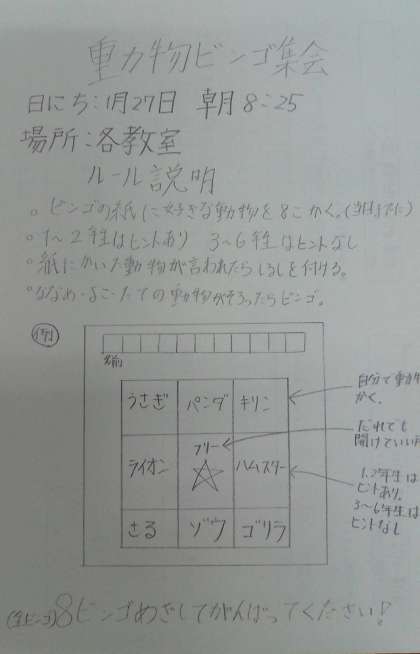 動物ビンゴ集会
日にち:1月27日 朝8:25
場所:各教室
ルール説明
。ビンゴの紙に好きな動物を8こかく。(当日までに)
。1~2年生はヒントあり 3~6年生はヒントなし
。紙にかいた動物が言われたらしるしを付ける。
。ななめ・よこ・たての動物がそろったらビンゴ。
例
名前
うさぎ パンダ キリン
ライオン フリー ハムスター
さる ゾウ ゴリラ
自分で動
かく。
だれでも
開けていい
1.2年生は
ヒントあり。
3~6年生は
ヒントなし
(全ビンゴ)8ビンゴめざしてがんばってください!